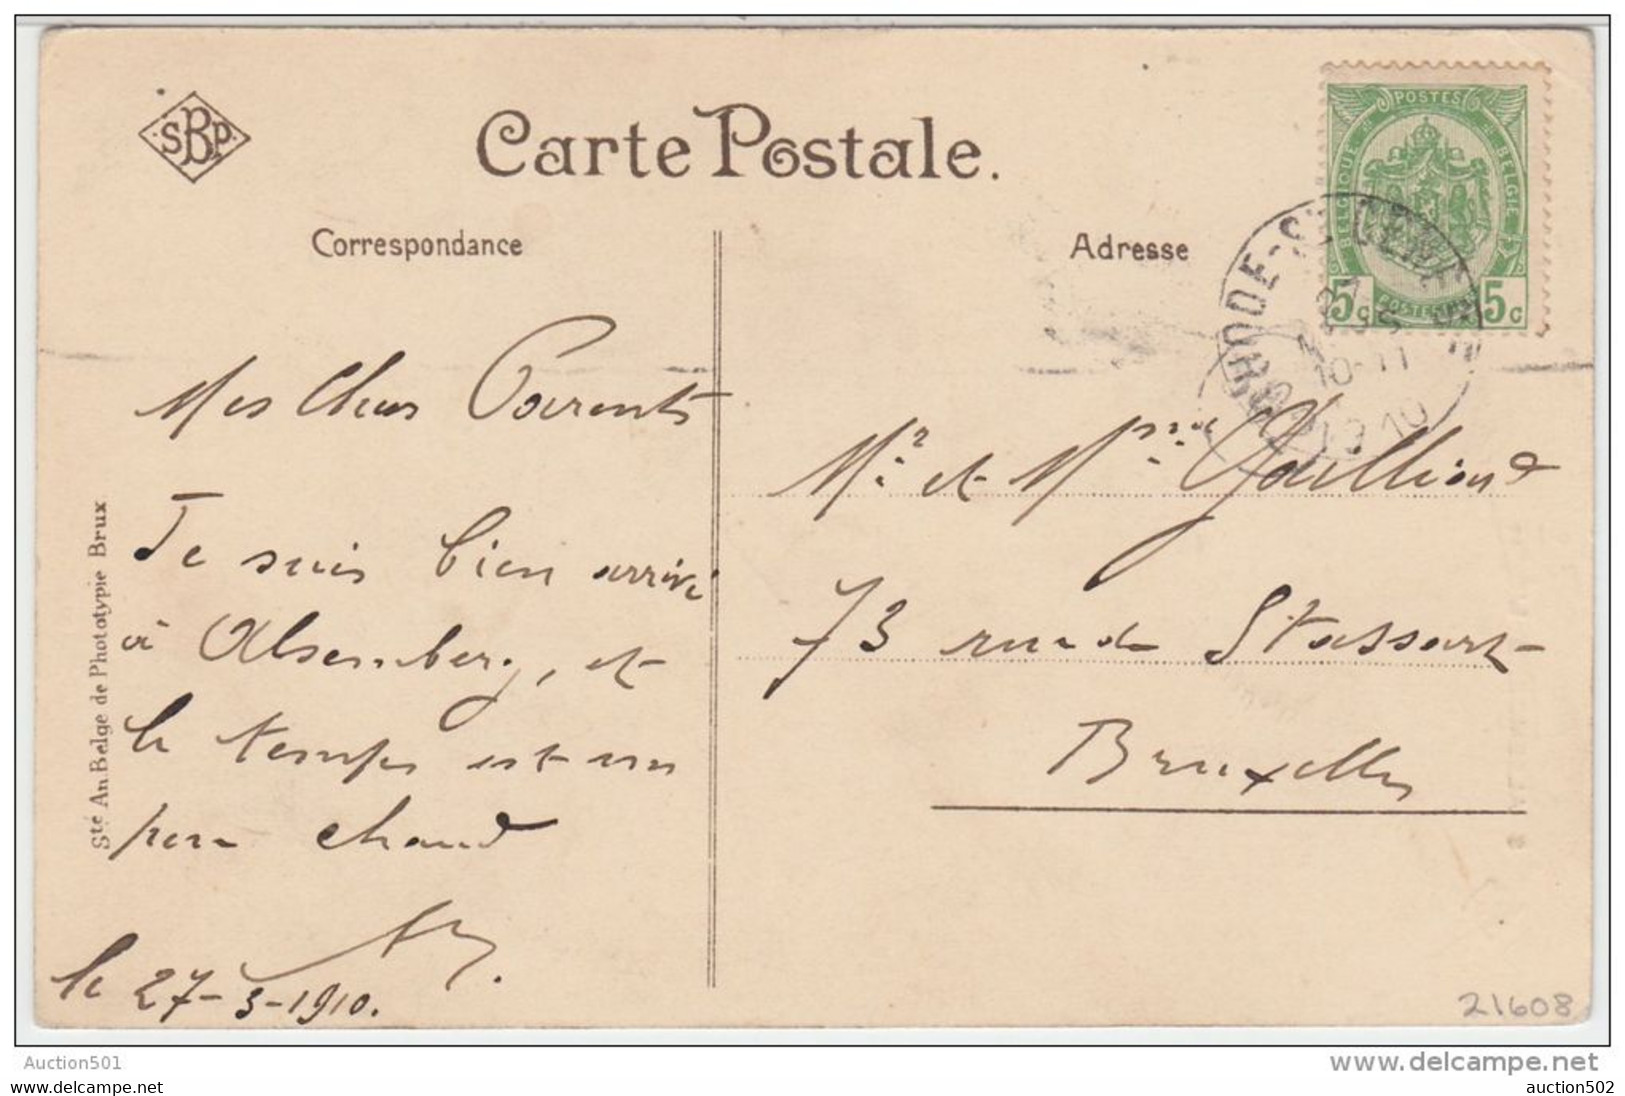 SBP
Carte Postale.
Correspondance
Adresse
POSTES
BELGIQUE BELGIE
5c POSTERIJEN 5c
RHODE-ST GENÈSE
10-11
1910
Mes Chers Parents
Je suis bien arrivé
à Alsemberg, et
le temps est un
peu chaud
le 27-3-1910.
Mr et Mme Gailliard
73 rue de Stassart
Bruxelles
Sté An. Belge de Phototypie Brux
21608
Auction501
www.delcampe.net
auction502
auction502